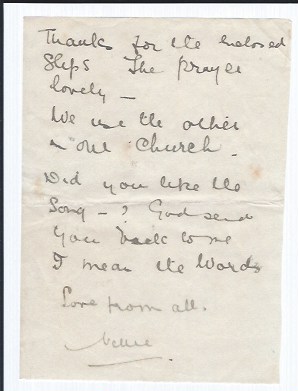 Thanks for the enclosed
slips The prayer
lovely –
We use the other
in our Church.
Did you like the
Song – ? God send
you back to me
I mean the Words
Love from all.
Nellie